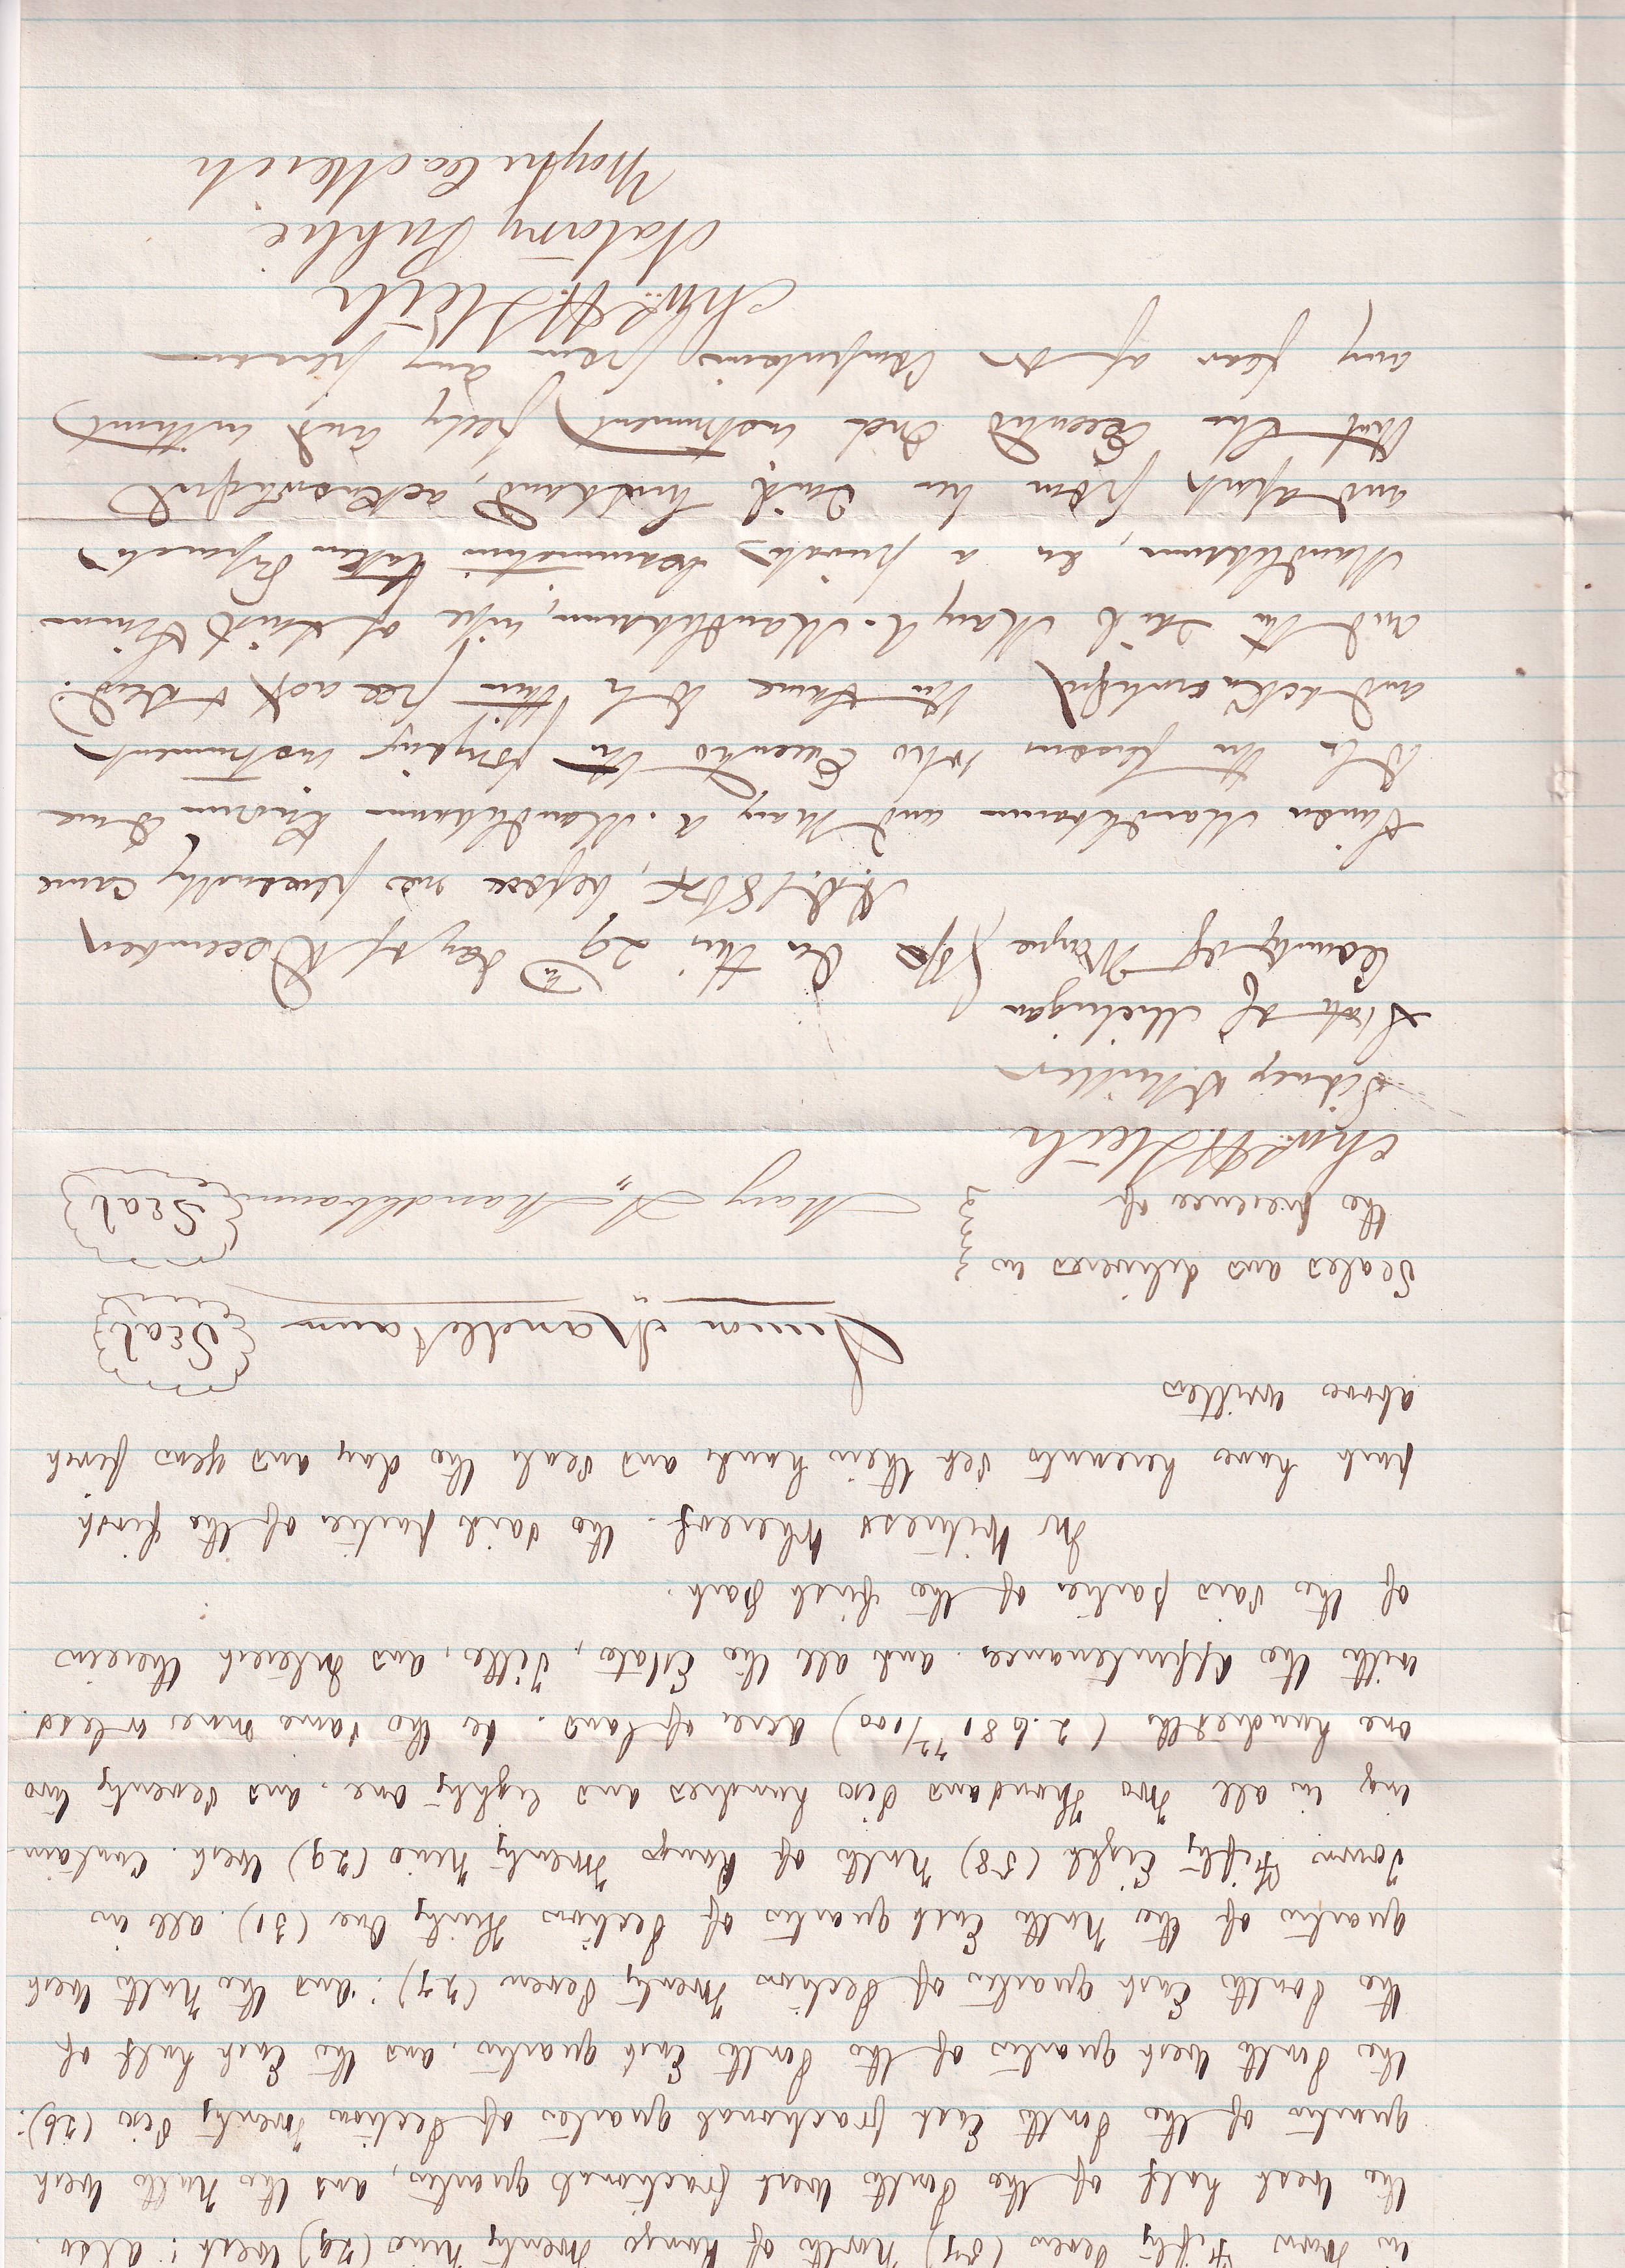 in Town Fifty Seven (57) North of Range Twenty Nine (29) West: also
the West half of the South West fractional quarter, and the North West
quarter of the South East fractional quarter of Section Twenty Six (26):
the South West quarter of the South East quarter, and the East half of
the South East quarter of Section Twenty Seven (27): and the North West
quarter of the North East quarter of Section Thirty One (31). all in
Town Fifty Eight (58) North of Range Twenty Nine (29) West. Contain-
ing in all Two Thousand Six hundred and Eighty One. and Seventy two
one hundredths (2.681 72/100) Acres of land. be the same more or less.
with the Appurtenances. and all the Estate, Title, and Interest therein
of the said parties of the first part.
In Witness Whereof. the said parties of the first
part have hereunto set their hands and seals the day and year first
above written
Simon Mandlebaum {Seal}
Sealed and delivered in
the presence of
Mary A. Mandlebaum {Seal}
Chas. H. 
Sidney D. Miller
State of Michigan
County of Wayne } ss On this 29th day of December
A.D. 18 before me personally came
Simon Mandlebaum and Mary A. Mandlebaum known to me
to be the persons who Executed the foregoing instrument
and acknowledged the same to be their free act & deed:
and the said Mary A. Mandlebaum, wife of said Simon
Mandlebaum, on a private examination taken separate
and apart from her said husband, acknowledged
that she Executed said instrument freely and without
any fear of or compulsion from any person
Chas. H. 
Notary Public
Wayne Co Mich